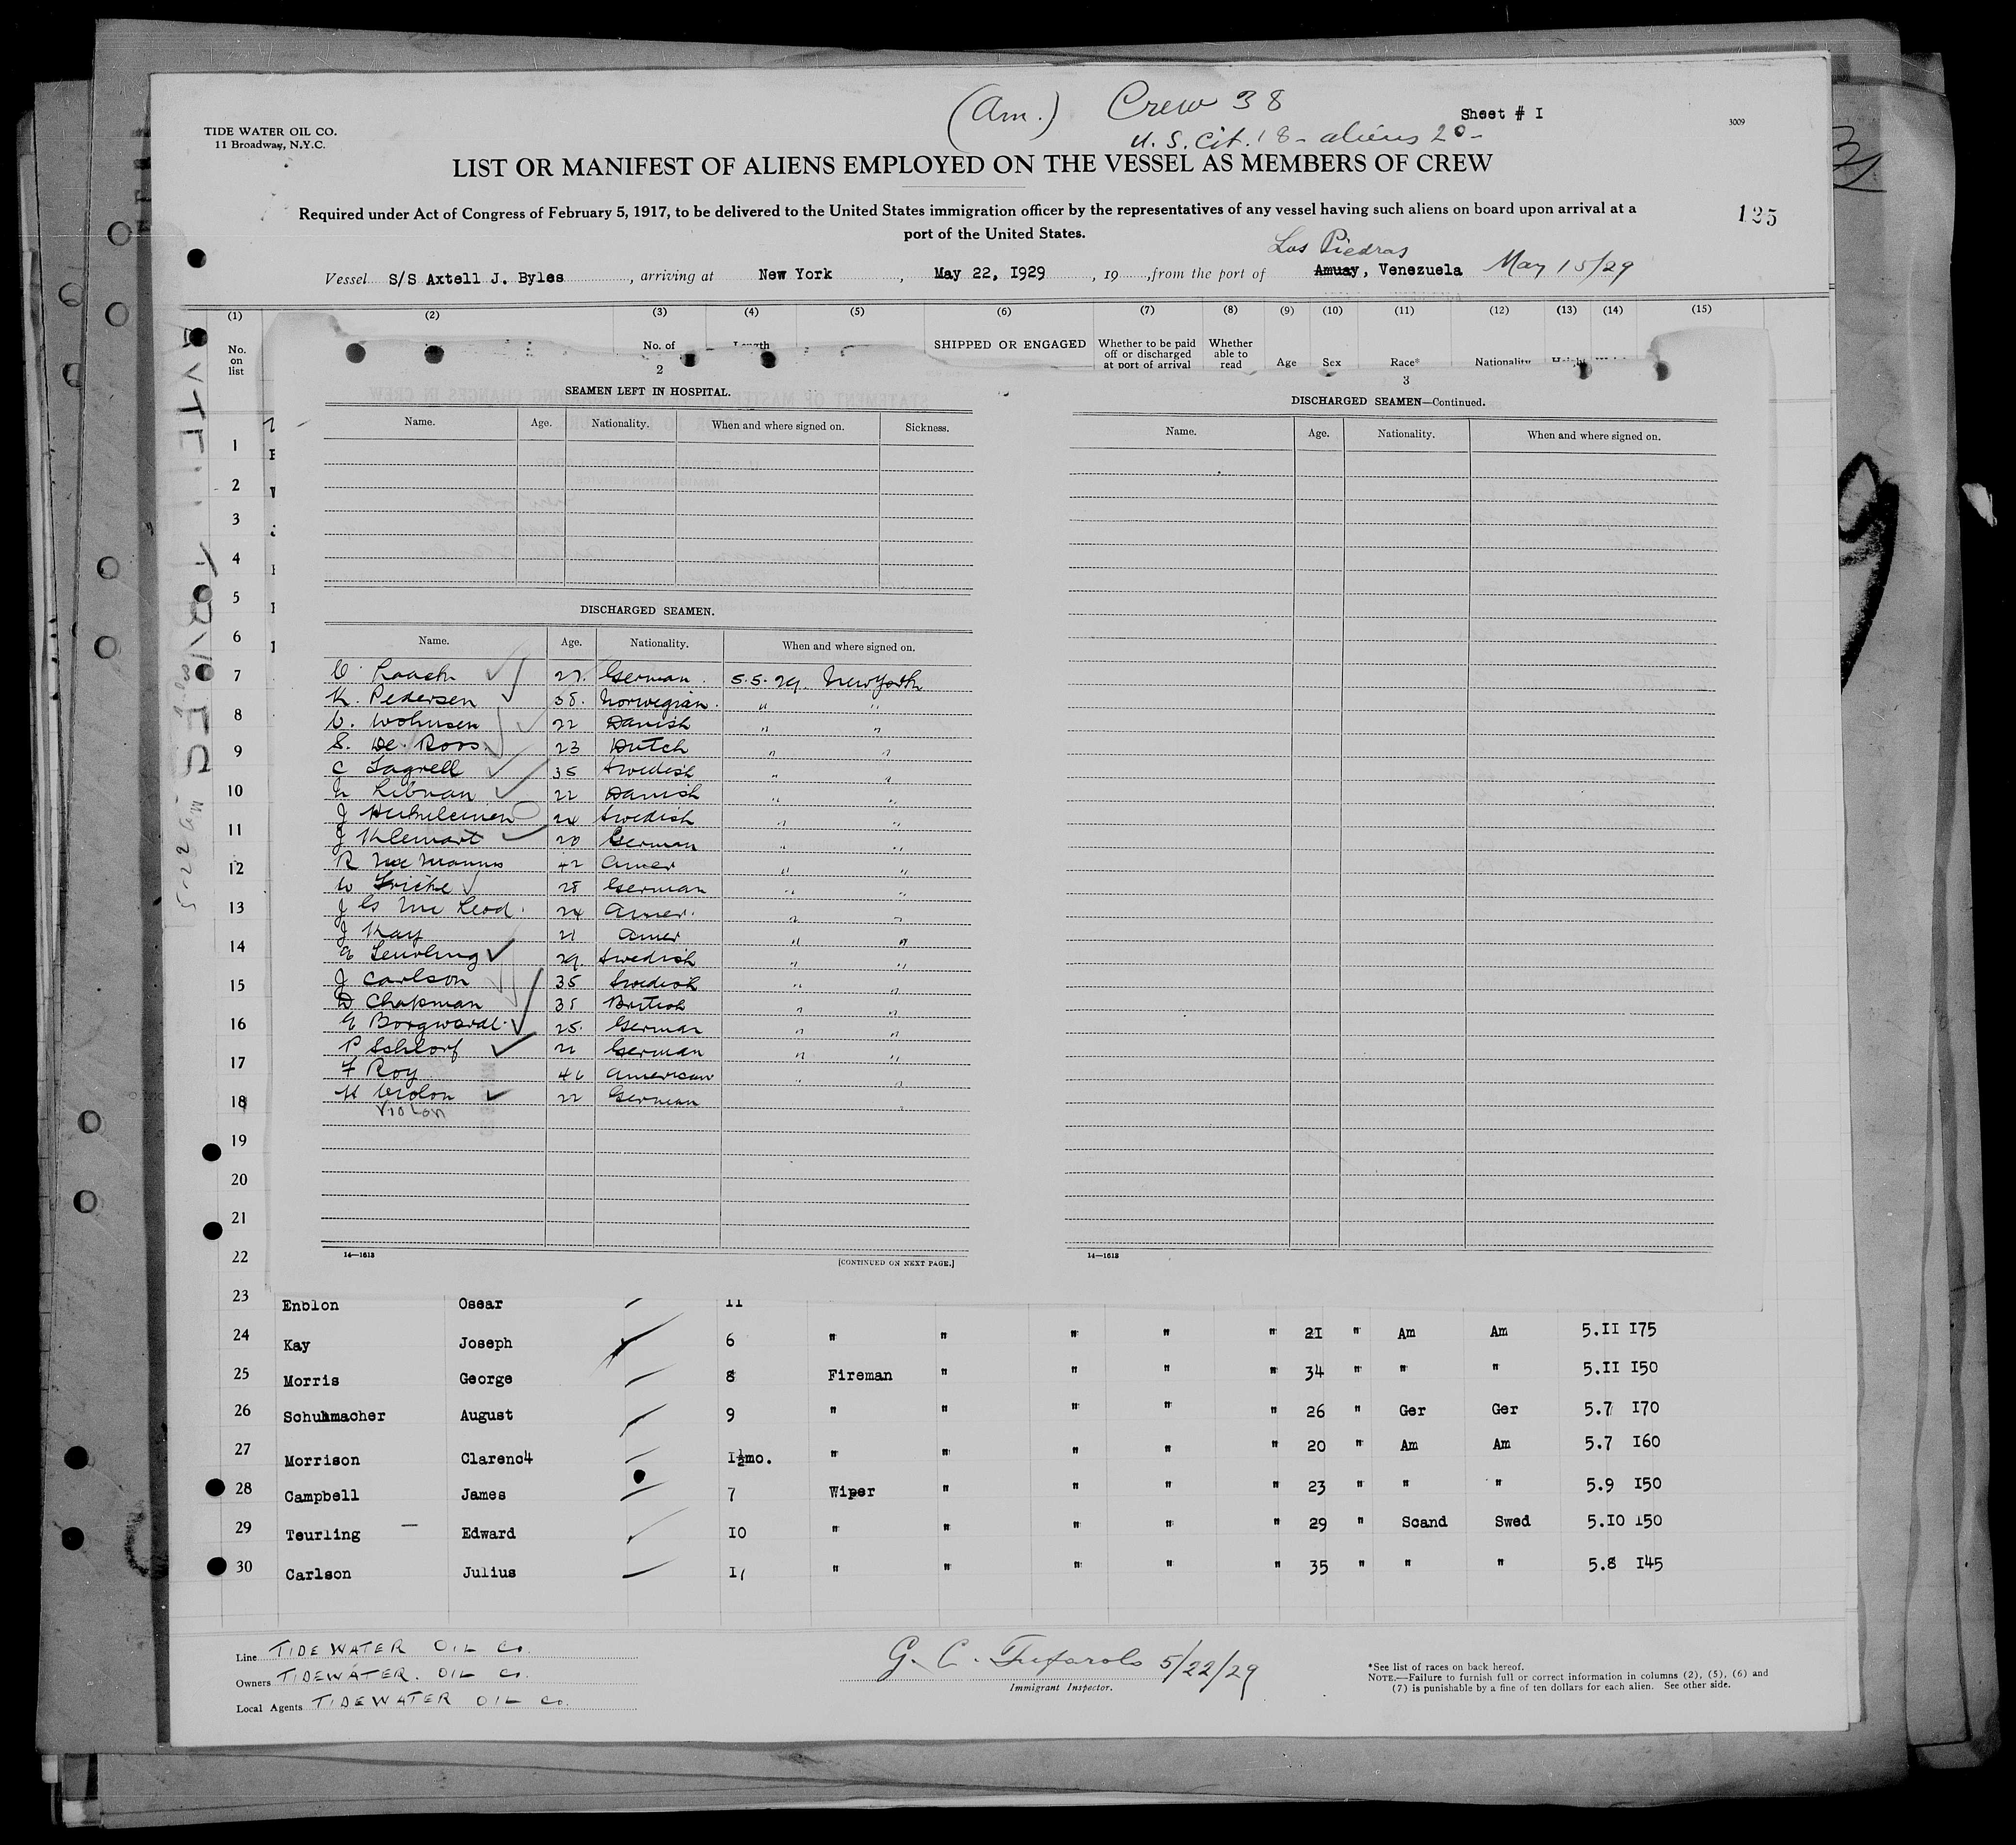 (Am.) Crew 38
U.S. Cit. 18 - aliens 20 -
Sheet # I
3009
TIDE WATER OIL CO.
11 Broadway, N.Y.C.
LIST OR MANIFEST OF ALIENS EMPLOYED ON THE VESSEL AS MEMBERS OF CREW
Required under Act of Congress of February 5, 1917, to be delivered to the United States immigration officer by the representatives of any vessel having such aliens on board upon arrival at a
port of the United States.
125
Las Piedras
Vessel S/S Axtell J. Byles, arriving at New York, May 22, I929, 19 , from the port of Amuay, Venezuela May 15/29
(1) (2) (3) (4) (5) (6) (7) (8) (9) (10) (11) (12) (13) (14) (15)
No. on list No. of Length SHIPPED OR ENGAGED Whether to be paid off or discharged at port of arrival Whether able to read Age Sex Race* Nationality Height
2
SEAMEN LEFT IN HOSPITAL.
Name. Age. Nationality. When and where signed on. Sickness.
DISCHARGED SEAMEN.
Name. Age. Nationality. When and where signed on.
Raasch 27. German. 5.5.29. New York
K. Pedersen 38. Norwegian. " "
Wohnsen 22 Danish " "
S. De Roos. 23 Dutch " "
C Lagrell 35 Swedish " "
Libnan 22 Danish " "
J 24 Swedish " "
J Klemart 20 German " "
R Mc Manus 42 Amer " "
W Fricke 28 German " "
J G Mc Leod. 24 Amer. " "
J Kay 21 Amer " "
E Teurling 29. Swedish " "
J Carlson 35 Swedish " "
D Chapman 35 British " "
Borgwardt 25. German " "
P Schlorf 21 German " "
F Roy 46 American " "
M Violon 22 German "
Violon
14—1613
[CONTINUED ON NEXT PAGE.]
3
DISCHARGED SEAMEN—Continued.
Name. Age. Nationality. When and where signed on.
14—1613
1
2
3
4
5
6
7
8
9
10
11
12
13
14
15
16
17
18
19
20
21
22
23 Enblon Osear 11
24 Kay Joseph 6 " " " " " 2I " Am Am 5.II I75
25 Morris George 8 Fireman " " " " 34 " " " 5.II I50
26 Schuhmacher August 9 " " " " " 26 " Ger Ger 5.7 I70
27 Morrison Clarenc4 I½mo. " " " " " 20 " Am Am 5.7 I60
28 Campbell James 7 Wiper " " " " 23 " " " 5.9 I50
29 Teurling — Edward IO " " " " " 29 " Scand Swed 5.IO I50
30 Carlson Julius I1 " " " " " 35 " " " 5.8 I45
Line TIDEWATER OIL Co.
Owners TIDEWATER. OIL Co.
Local Agents TIDEWATER OIL Co.
G. C. Tufarolo 5/22/29
Immigrant Inspector.
*See list of races on back hereof.
NOTE.—Failure to furnish full or correct information in columns (2), (5), (6) and
(7) is punishable by a fine of ten dollars for each alien. See other side.